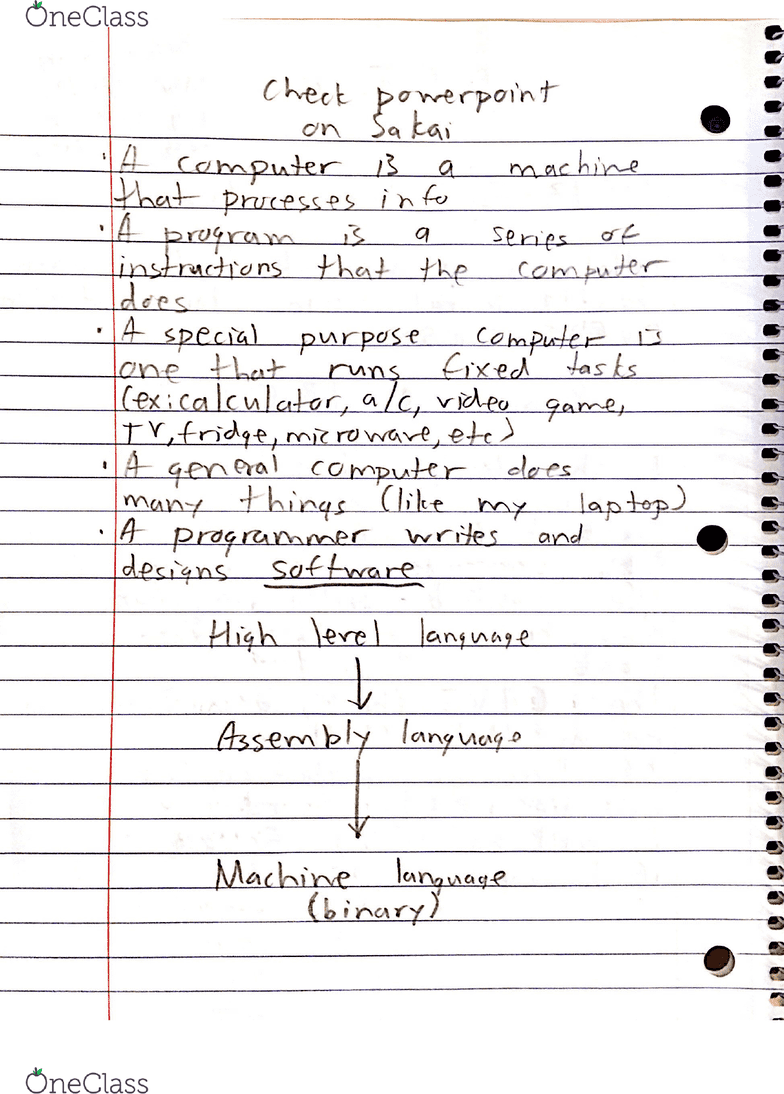 OneClass
Check powerpoint
on Sakai
· A computer is a machine
that processes info
· A program is a series of
instructions that the computer
does
· A special purpose computer is
one that runs fixed tasks
(ex: calculator, a/c, video game,
TV, fridge, microwave, etc)
· A general computer does
many things (like my laptop)
· A programmer writes and
designs software
High level language
↓
Assembly language
↓
Machine language
(binary)
OneClass